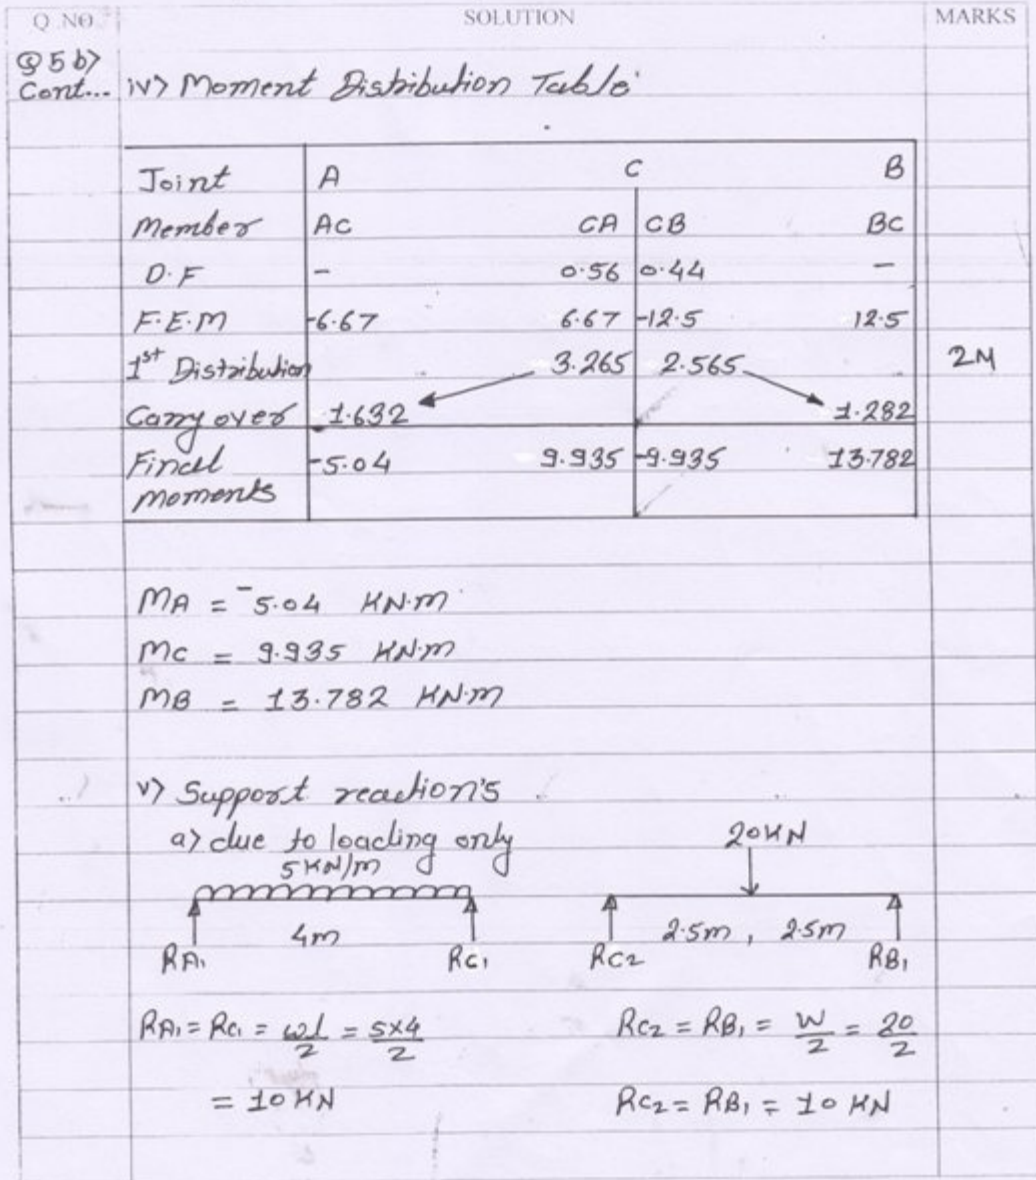 Q NO. SOLUTION MARKS
Q5 b>
Cont... iv> Moment Distribution Table
Joint A C B
Member AC CA CB BC
D.F - 0.56 0.44 -
F.E.M -6.67 6.67 -12.5 12.5
1st Distribution 3.265 2.565 2M
Carry over 1.632 1.282
Final -5.04 9.935 -9.935 13.782
moments
MA = -5.04 KN.m
MC = 9.935 KN.m
MB = 13.782 KN.m
v> Support reaction's
a> due to loading only 20KN
5KN/m
4m 2.5m, 2.5m
RA1 RC1 RC2 RB1
RA1 = RC1 = wl/2 = 5x4/2 RC2 = RB1 = W/2 = 20/2
= 10 KN RC2 = RB1 = 10 KN